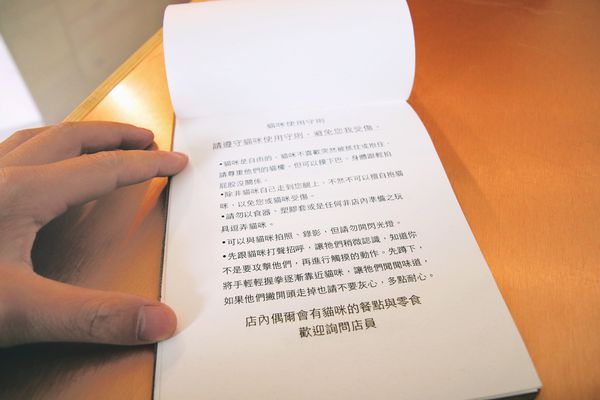 貓咪使用守則
請遵守貓咪使用守則，避免您我受傷。
•貓咪是自由的，貓咪不喜歡突然被抓住或抱住，
請尊重他們的貓權，但可以摸下巴、身體跟輕拍
屁股沒關係。
•除非貓咪自己走到您腿上，不然不可以擅自抱貓
咪，以免您或貓咪受傷。
•請勿以食器、塑膠套或是任何非店內準備之玩
具逗弄貓咪。
•可以與貓咪拍照、錄影，但請勿開閃光燈。
•先跟貓咪打聲招呼，讓他們稍微認識，知道你
不是要攻擊他們，再進行觸摸的動作。先蹲下，
將手輕輕握拳逐漸靠近貓咪，讓他們聞聞味道，
如果他們撇開頭走掉也請不要灰心，多點耐心。
店內偶爾會有貓咪的餐點與零食
歡迎詢問店員